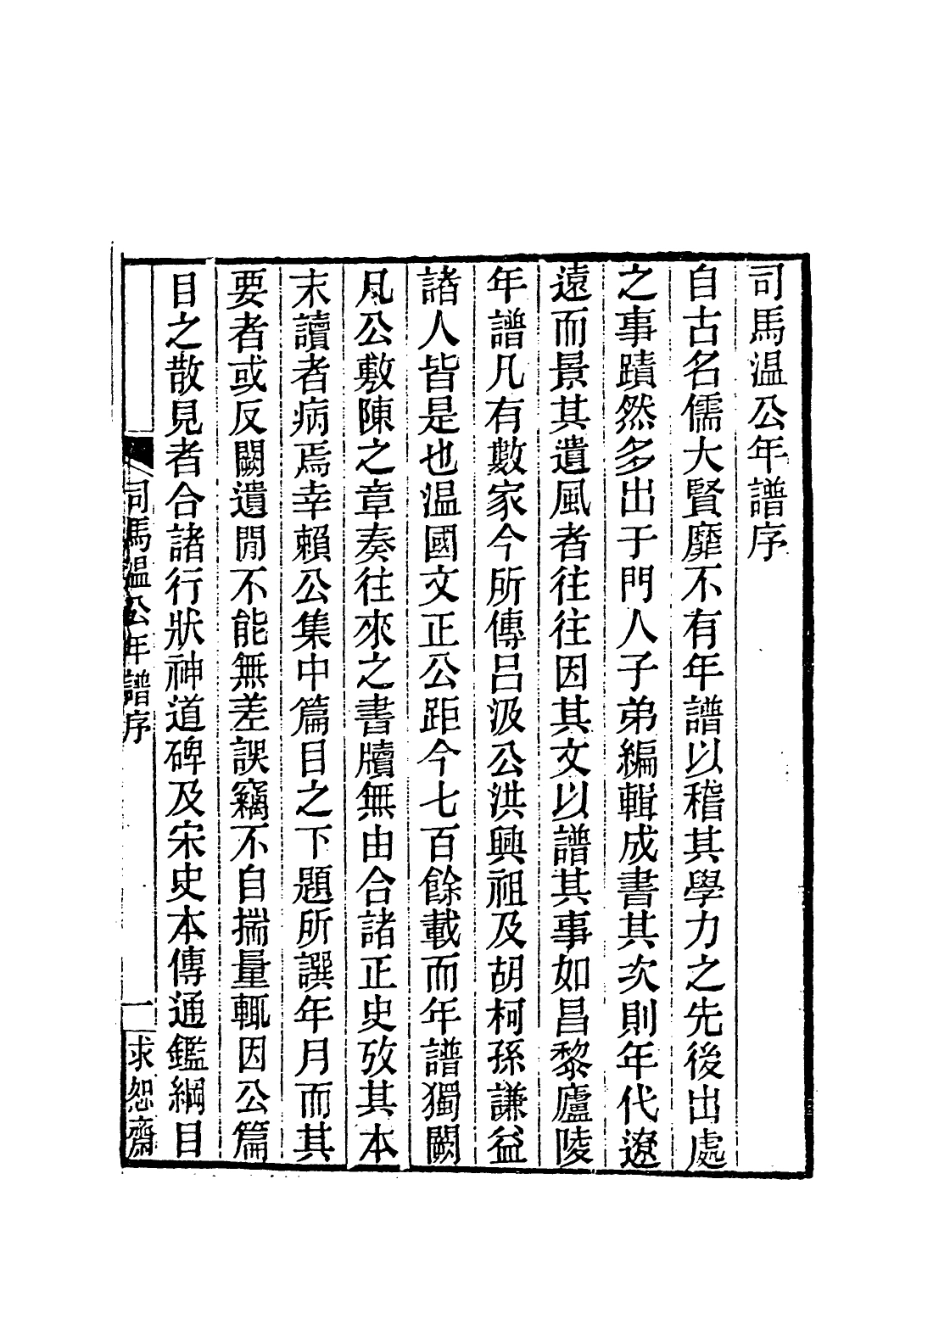 司馬温公年譜序
自古名儒大賢靡不有年譜以稽其學力之先後出處
之事蹟然多出于門人子弟編輯成書其次則年代遼
遠而景其遺風者往往因其文以譜其事如昌黎廬陵
年譜凡有數家今所傳呂汲公洪興祖及胡柯孫謙益
諸人皆是也温國文正公距今七百餘載而年譜獨闕
凡公敷陳之章奏往來之書牘無由合諸正史攷其本
末讀者病焉幸賴公集中篇目之下題所譔年月而其
要者或反闕遺閒不能無差誤竊不自揣量輒因公篇
目之散見者合諸行狀神道碑及宋史本傳通鑑綱目
司馬温公年譜序
一
求恕齋